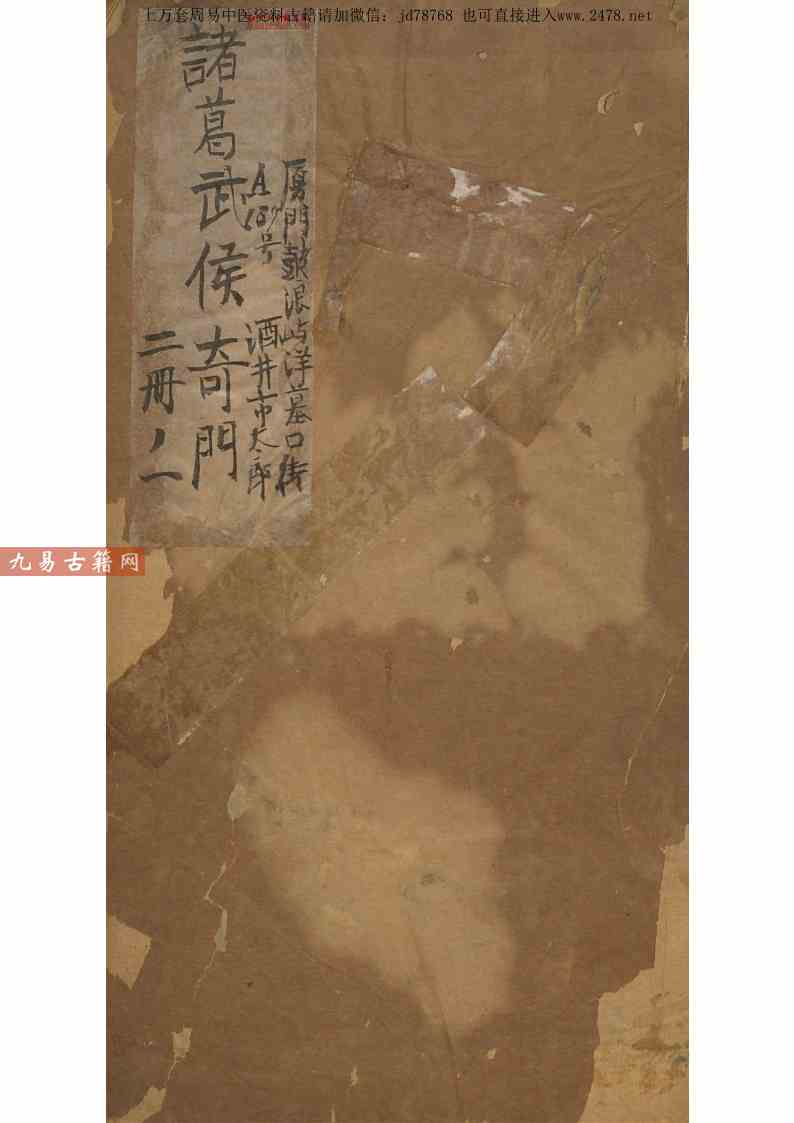 上万套周易中医资料古籍请加微信：jd78768 也可直接进入www.2478.net
厦門鼓浪屿洋墓口街
A189号
酒井市太郎
諸葛武侯奇門
二冊ノ一
九易古籍网